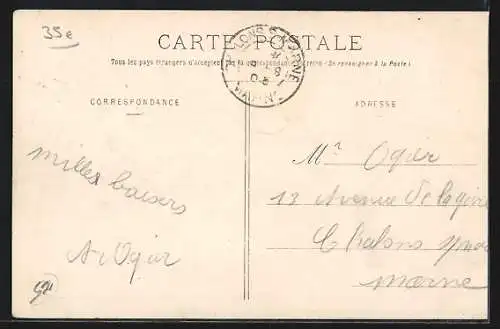 35e
CARTE POSTALE
Tous les pays étrangers n'acceptent pas la correspondance au recto (Se renseigner à la Poste)
CORRESPONDANCE
ADRESSE
Mr Ogier
milles baisers
13 Avenue de la gare
Chalons
A. Ogier
Marne